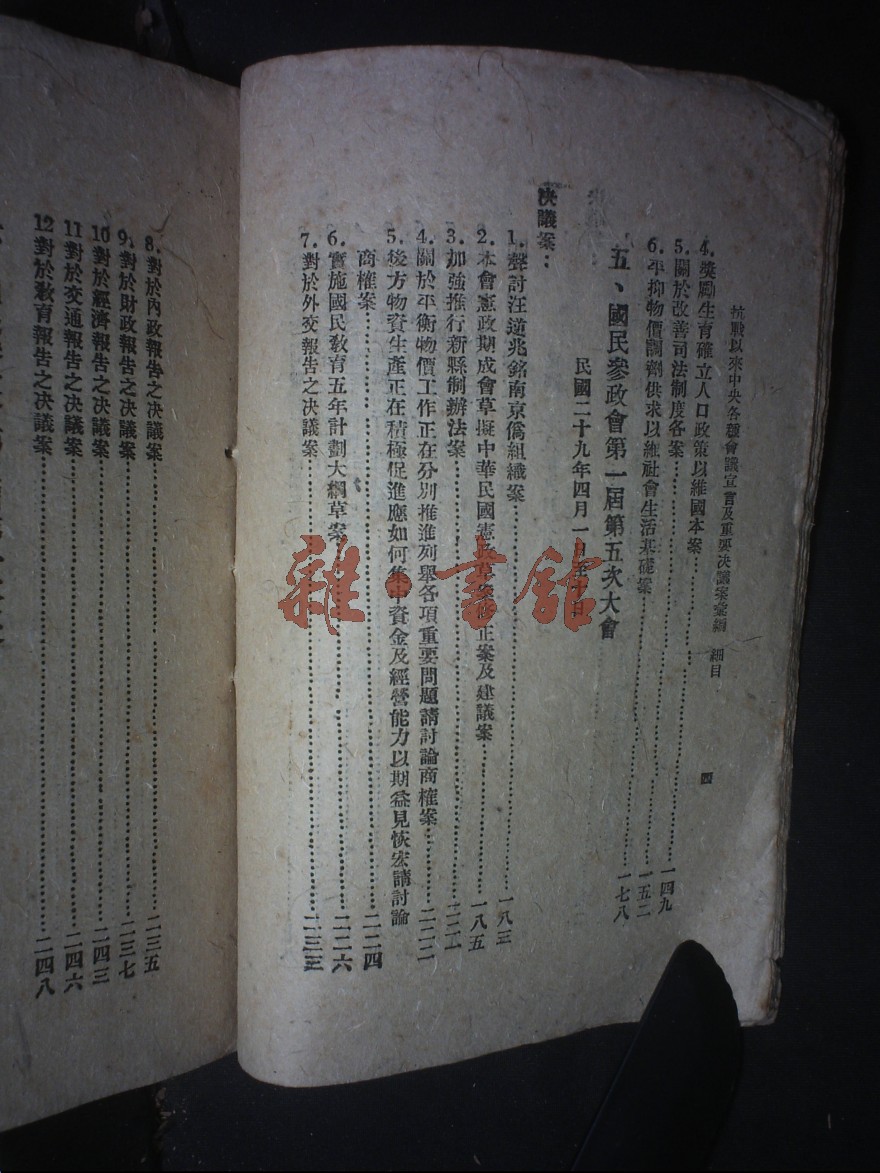 抗戰以來中央各種會議宣言及重要决議案彙編　細目　四
4. 奬勵生育確立人口政策以維國本案
5. 關於改善司法制度各案……一四九
6. 平抑物價調劑供求以維社會生活基礎案……一五二
五、國民參政會第一屆第五次大會……一七八
民國二十九年四月一日至十日
决議案：
1. 聲討汪逆兆銘南京僞組織案……一八三
2. 本會憲政期成會草擬中華民國憲法草案修正案及建議案……一八五
3. 加強推行新縣制辦法案……二二一
4. 關於平衡物價工作正在分別推進列舉各項重要問題請討論商榷案……二二二
5. 後方物資生產正在積極促進應如何集中資金及經營能力以期益見恢宏請討論
商榷案……二二四
6. 實施國民敎育五年計劃大綱草案……二二六
7. 對於外交報告之决議案……二三三
8. 對於內政報告之决議案……二三五
9. 對於財政報告之决議案……二三七
10 對於經濟報告之决議案……二四三
11 對於交通報告之决議案……二四六
12 對於敎育報告之决議案……二四八
雜·書館